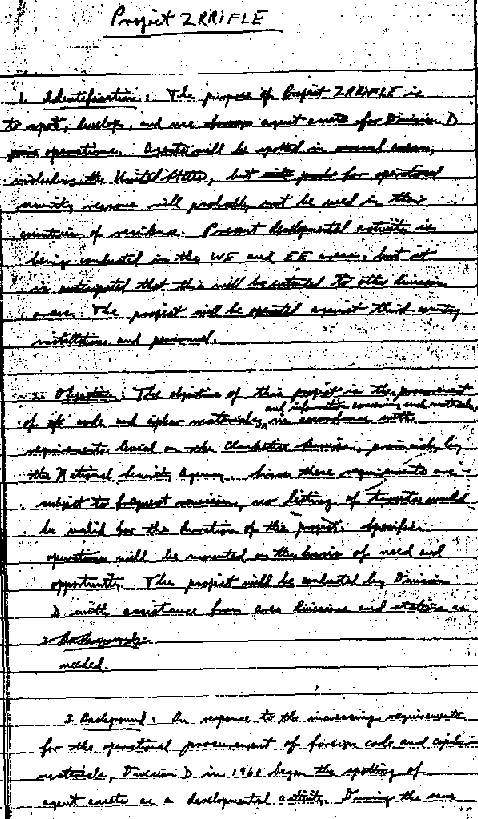 Project ZRRIFLE
1. Identification: The purpose of Project ZRRIFLE is
to spot, develop, and use agent assets for Division D
operations. Agents will be spotted in several areas,
including the United States, but for operational
security reasons will probably not be used in their
countries of residence. Present developmental activity is
being conducted in the WE and EE areas, but it
is anticipated that this will be extended to other division
areas. The project will be operated against third country
installations and personnel.
2. Objective: The objective of this project is the procurement
and information concerning such materials,
of code and cipher materials, in accordance with
requirements levied on the Clandestine Services, primarily by
the National Security Agency. Since these requirements are
subject to frequent revision, no listing of targets would
be valid for the duration of the project. Specific
operations will be mounted on the basis of need and
opportunity. The project will be conducted by Division
D with assistance from area divisions and stations as
3. Background:
needed.
3. Background: In response to the increasing requirements
for the operational procurement of foreign code and cipher
materials, Division D in 1960 began the spotting of
agent assets as a developmental activity. During the same